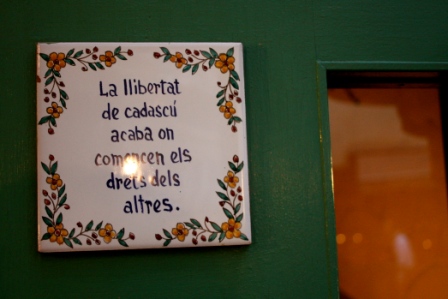 La llibertat
de cadascú
acaba on
comencen els
drets dels
altres.